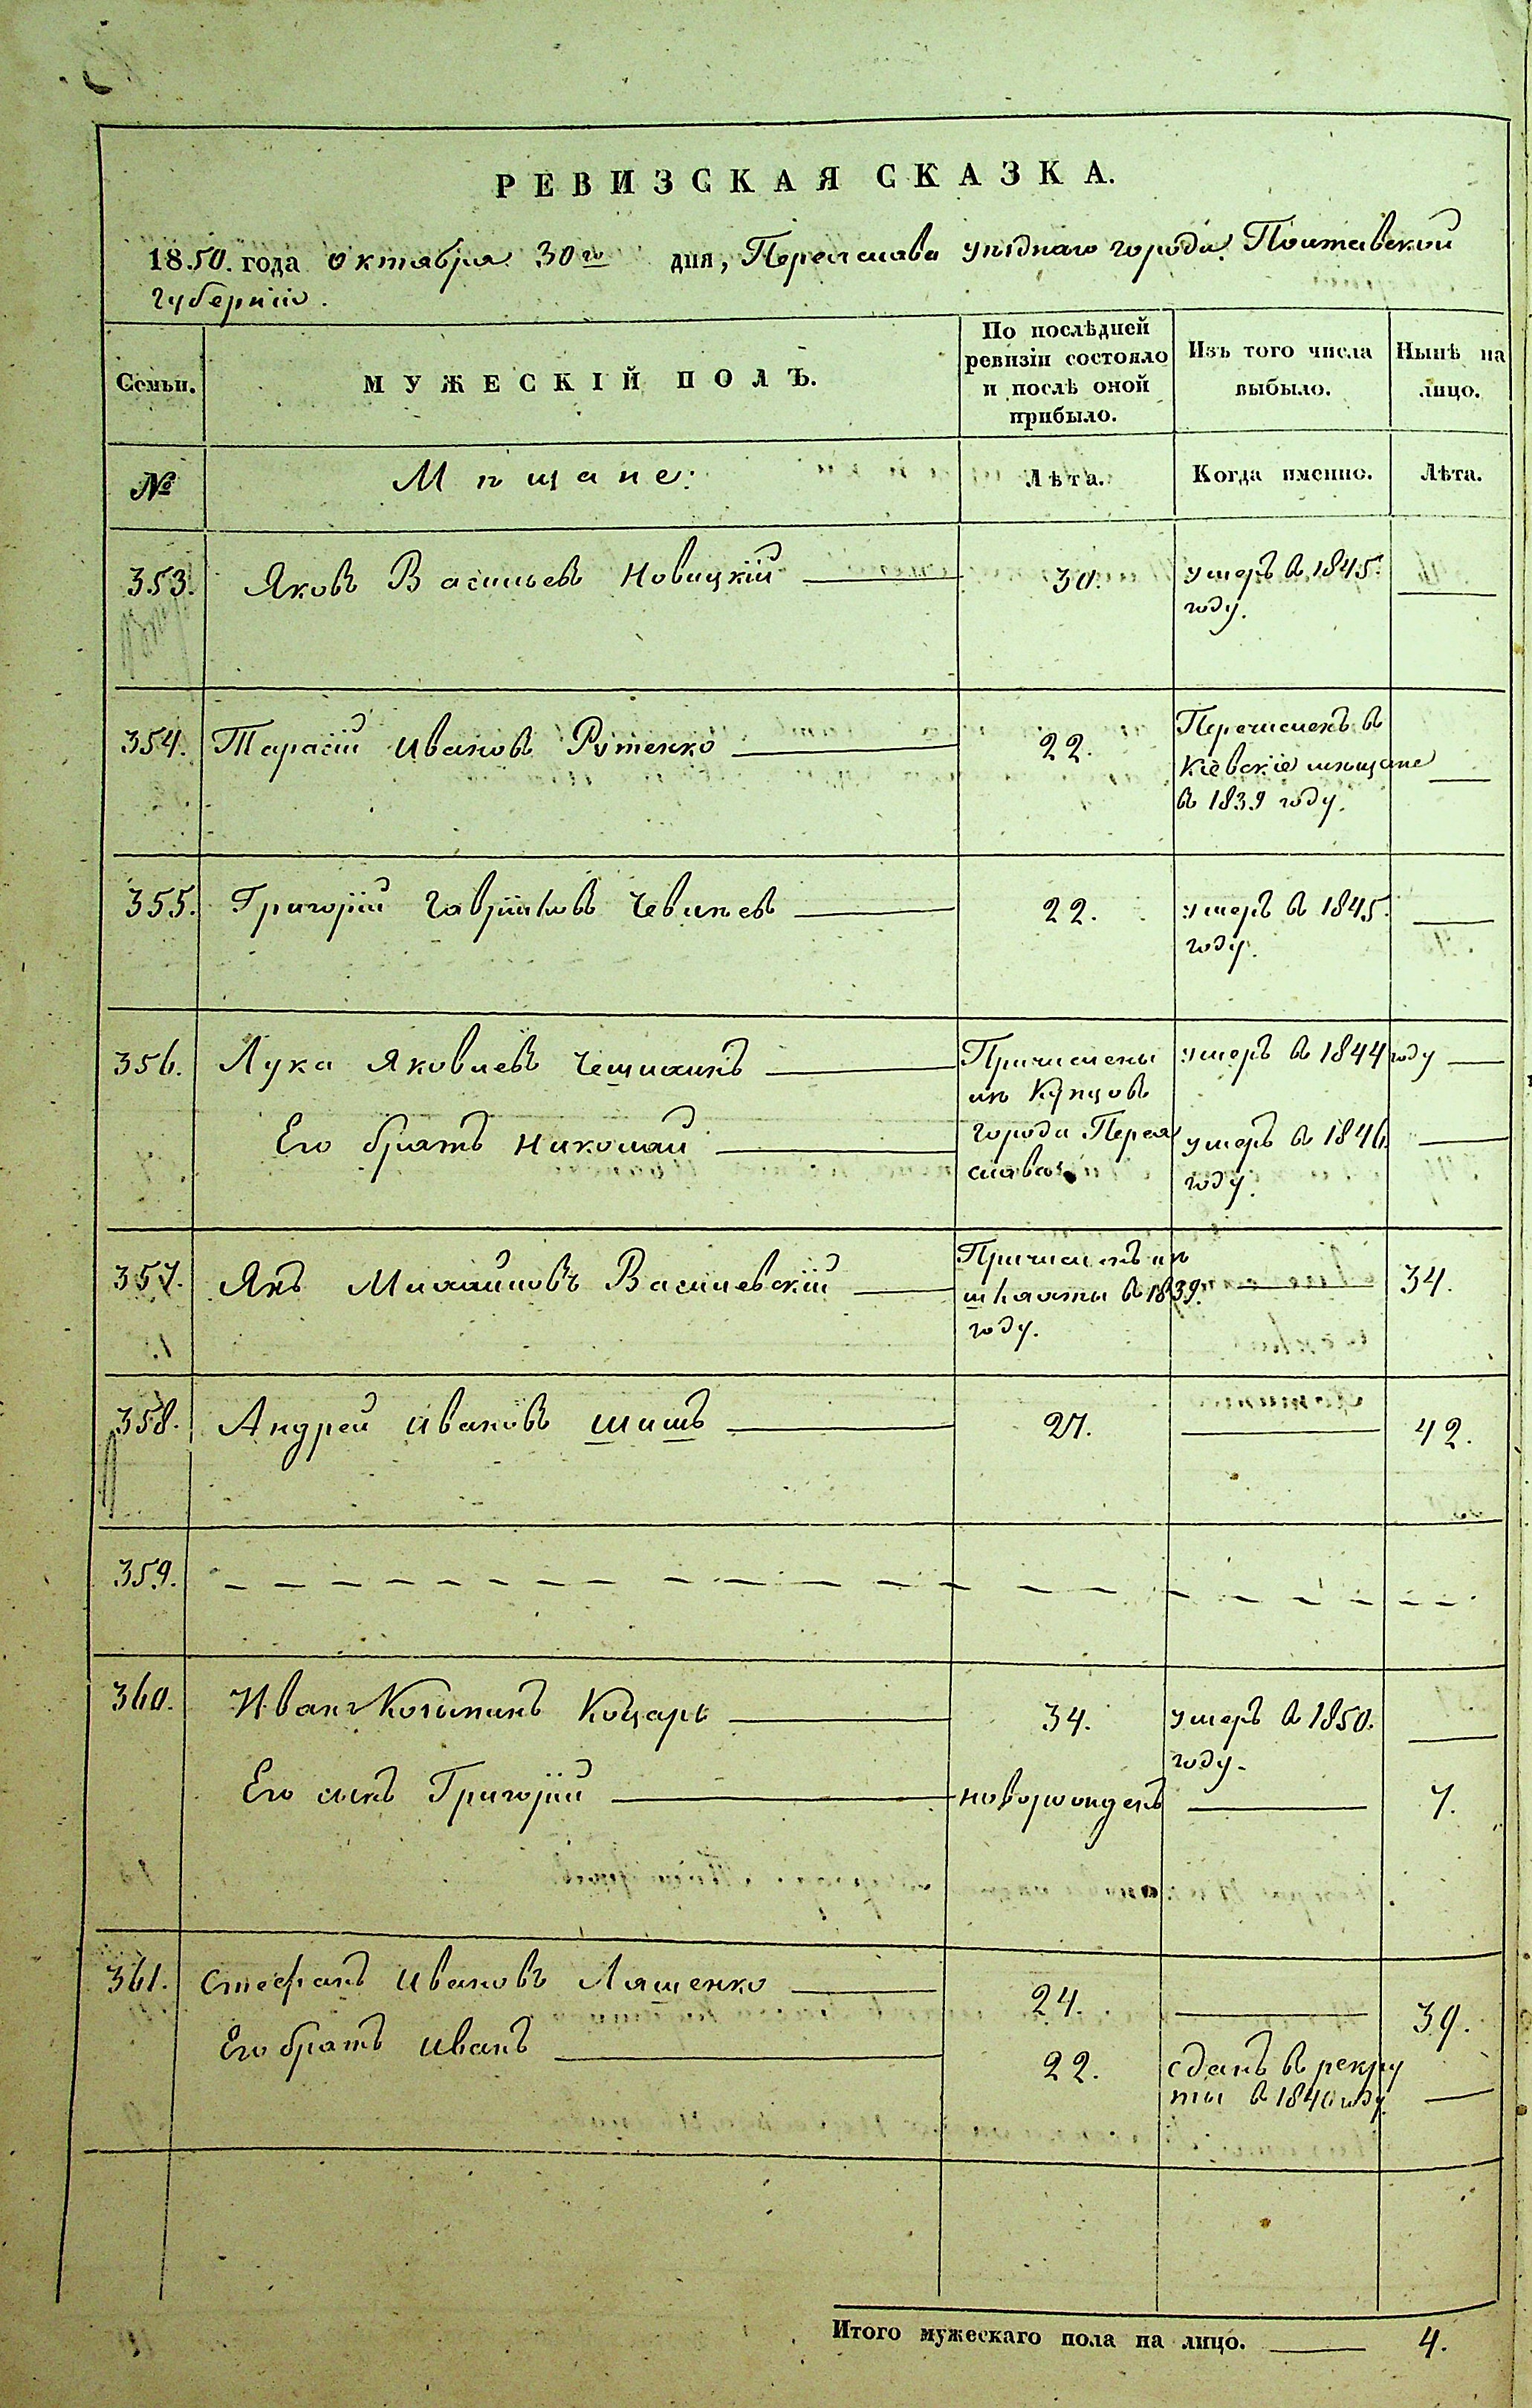 РЕВИЗСКАЯ СКАЗКА.
1850. года октября 30го дня, Переяслава уѣзднаго города Полтавской
губерніи.
Семьи.
МУЖЕСКІЙ ПОЛЪ.
По послѣдней
ревизіи состояло
и послѣ оной
прибыло.
Изъ того числа
выбыло.
Нынѣ на
лицо.
№
Мѣщане:
Лѣта.
Когда именно.
Лѣта.
353. Яковъ Васильевъ Новицкій 30. умеръ в 1845.
году.
354. Тарасій Ивановъ Рутенко 22. Перечисленъ в
Кіевскіе мѣщане
в 1839 году.
355. Григорій Гавріиловъ 22. умеръ в 1845.
году.
356. Лука Яковлевъ Причислены умеръ в 1844 году
изъ Купцовъ
Его братъ Николай города Перея умеръ в 1846.
слава. году.
357. Янъ Михайловъ Василевскій Причисленъ изъ 34.
шляхты в 1839.
году.
358. Андрей Ивановъ Шишъ 27. 42.
359.
360. Иванъ Коцарь 34. умеръ в 1850.
году.
Его сынъ Григорій новорожденъ 7.
361. Стефанъ Ивановъ Ляшенко 24. 39.
Его братъ Иванъ 22. сданъ в рекру
ты в 1840 году.
Итого мужескаго пола на лицо. 4.